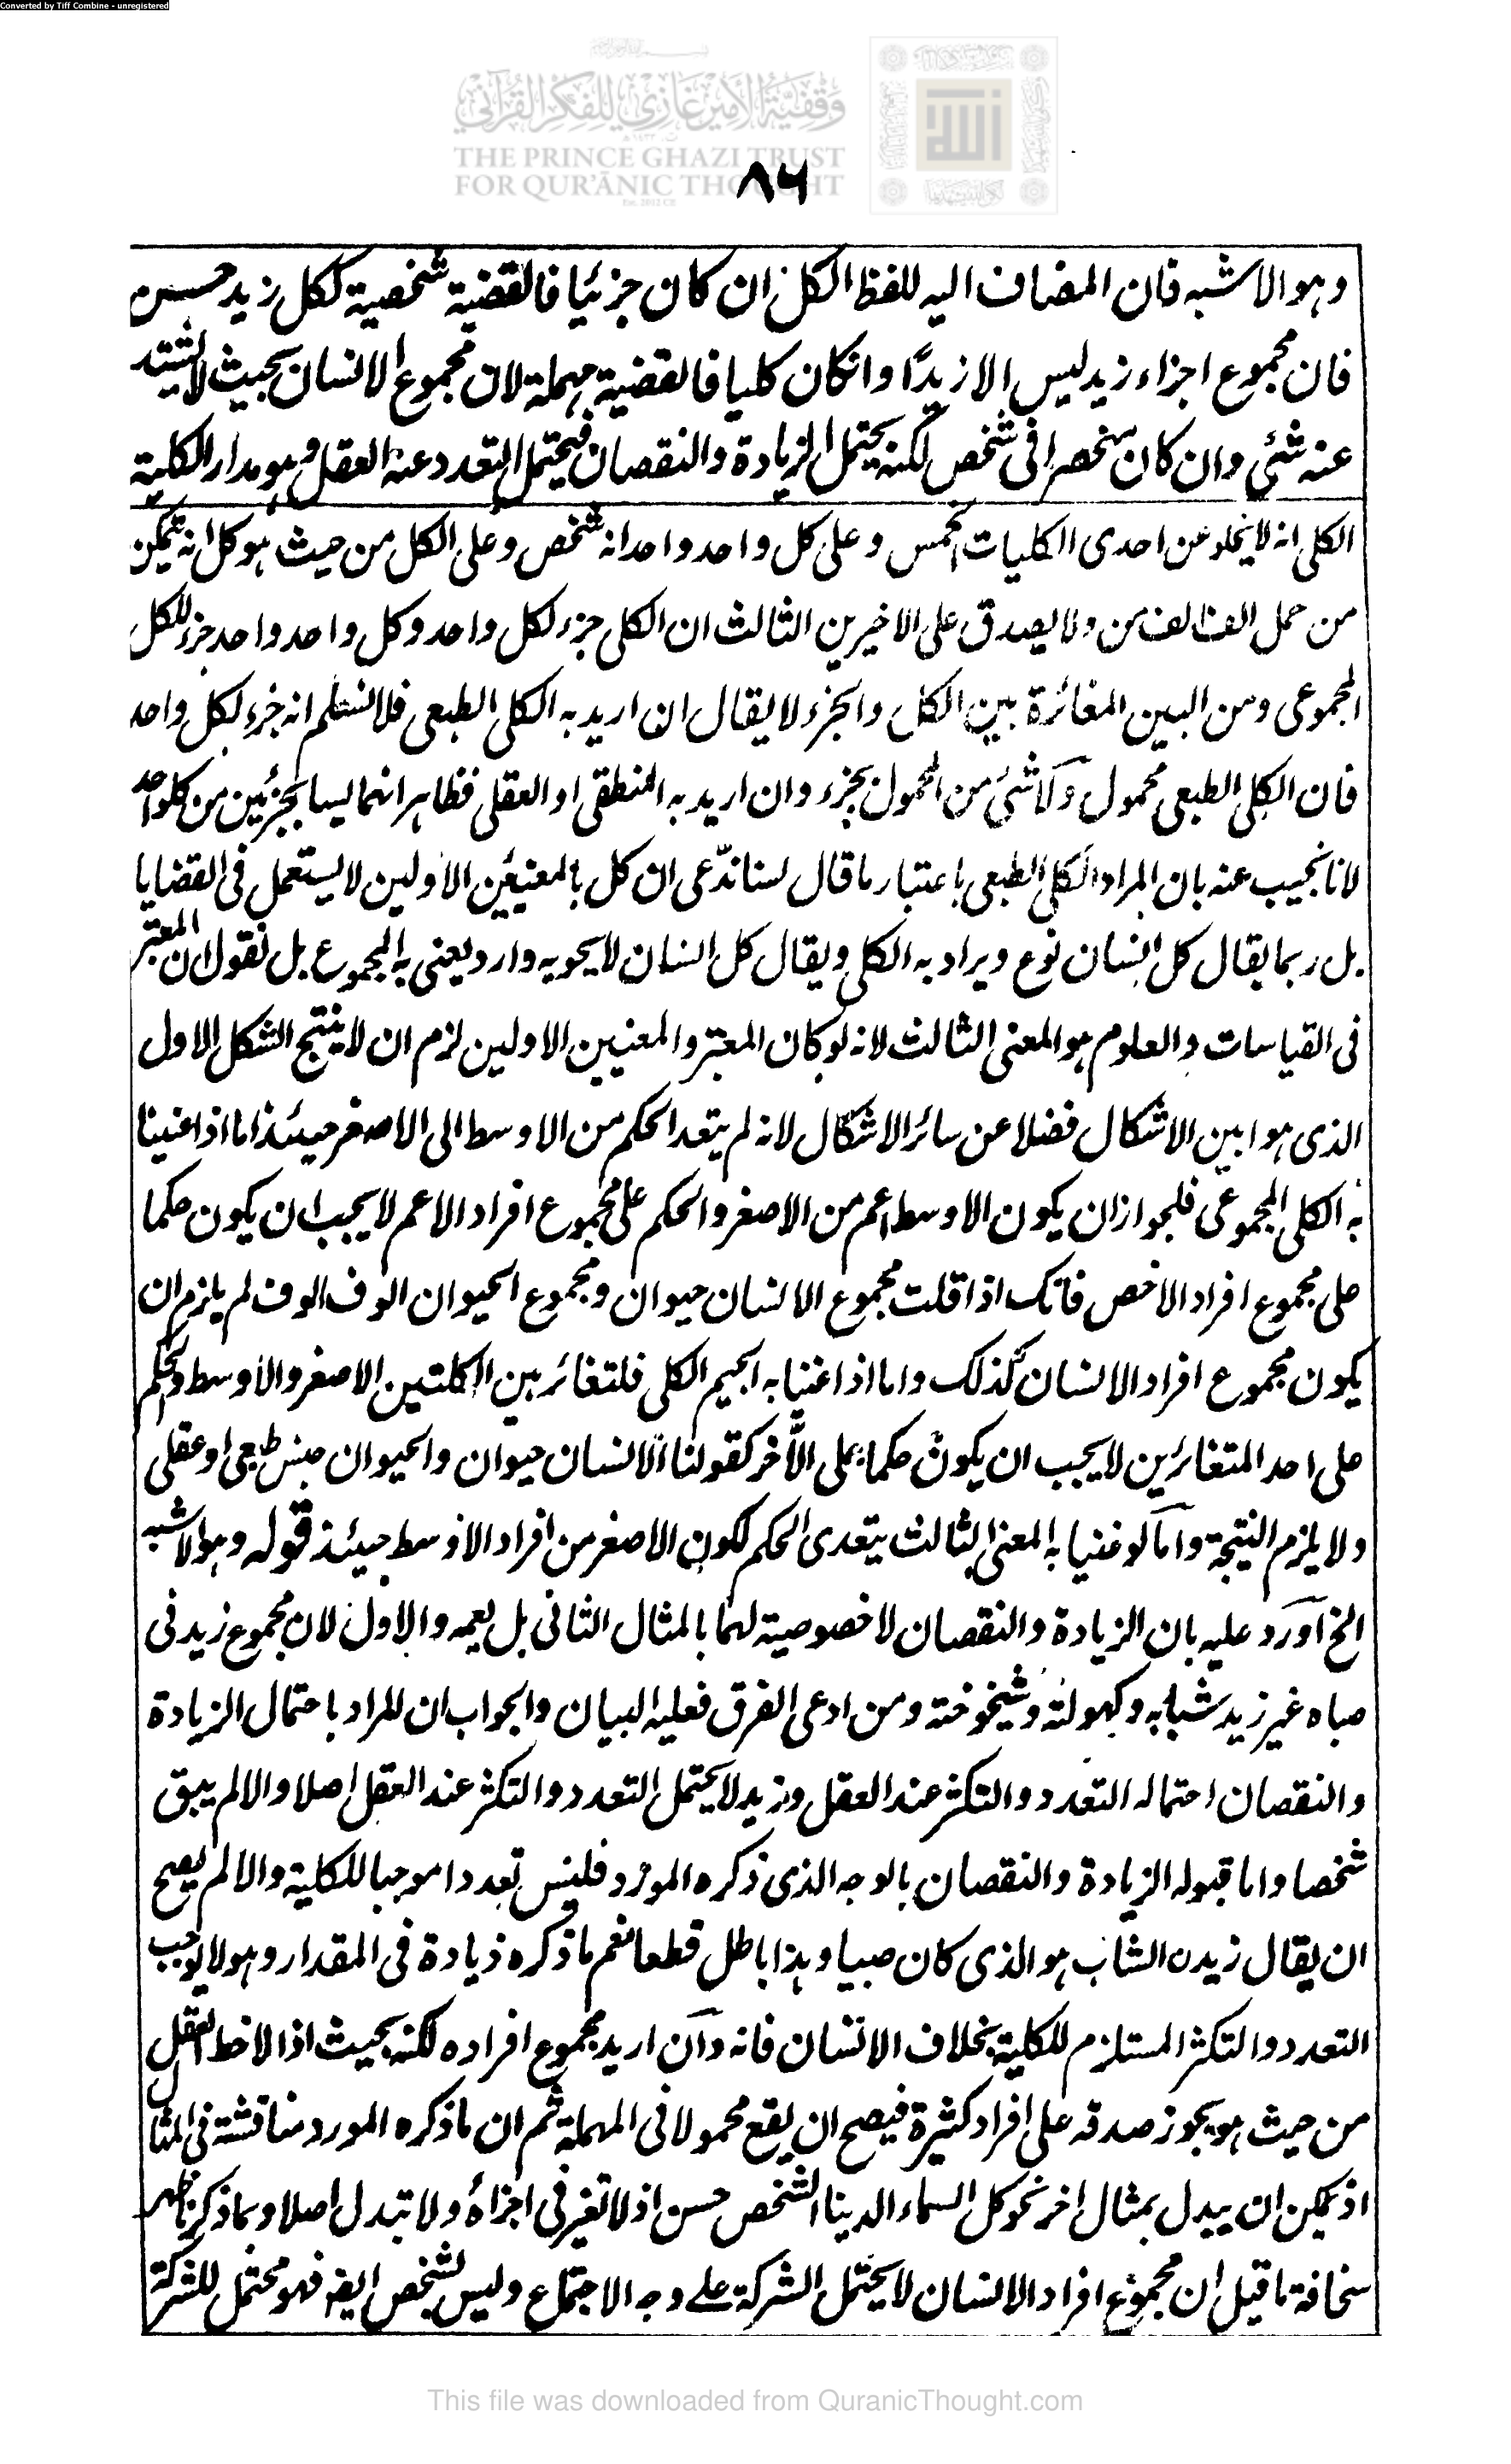 Converted by Tiff Combine - unregistered
وقفية الأمير غازي للفكر القرآني
THE PRINCE GHAZI TRUST
FOR QUR'ĀNIC THOUGHT
Est. 2012 CE
٨٦
وهو الاشبه فان المضاف اليه للفظ الكل ان كان جزئيا فالقضية شخصية ككل زيد حسن
فان مجموع اجزاء زيد ليس الا زيدًا وانكان كليا فالقضية مهملة لان مجموع الانسان بحيث لا يشتد
عنه شئي وان كان منحصرا فى شخص لكنه يحتمل الزيادة والنقصان فيحتمل التعدد عند العقل وهو مدار الكلية
الكلى انه لا يخلو عن احدى الكليات الخمس وعلى كل واحد واحد انه شخص وعلى الكل من حيث هو كل انه يتمكن
من حمل الف الف من ولا يصدق على الاخيرين الثالث ان الكلى جزء لكل واحد وكل واحد واحد جزء للكل
المجموعى ومن البين المغائرة بين الكل والجزء لا يقال ان اريد به الكلى الطبعى فلا نسلم انه جزء لكل واحد
فان الكلى الطبعى محمول ولاشئ من المحمول بجزء وان اريد به المنطقى او العقلى فظاهر انهما ليسا بجزئين من كلواحد
لانا نجيب عنه بان المراد الكلى الطبعى باعتبار ما قال لسنا ندّعى ان كل بالمعنيين الاولين لا يستعمل فى القضايا
بل ربما يقال كل انسان نوع ويراد به الكلى ويقال كل انسان لا يحويه دار ويعنى به المجموع بل نقول ان المعتبر
فى القياسات والعلوم هو المعنى الثالث لانه لو كان المعتبر والمعنيين الاولين لزم ان لا ينتج الشكل الاول
الذى هو ابين الاشكال فضلا عن سائر الاشكال لانه لم يتعد الحكم من الاوسط الى الاصغر حينئذ اما اذا عنينا
به الكلى المجموعى فلجواز ان يكون الاوسط اعم من الاصغر والحكم على مجموع افراد الاعم لا يجب ان يكون حكما
على مجموع افراد الاخص فانك اذا قلت مجموع الانسان حيوان ومجموع الحيوان الوف الوف لم يلزم ان
يكون مجموع افراد الانسان كذلك واما اذا عنينا به الكلى فلتغائر بين الكلتين الاصغر والاوسط والحكم
على احد المتغائرين لا يجب ان يكون حكما على الآخر كقولنا الانسان حيوان والحيوان جنس طبعى او عقلى
ولا يلزم النتيجة واما لو عنينا به المعنى الثالث يتعدى الحكم لكون الاصغر من افراد الاوسط حينئذ قوله وهو الاشبه
الخ آورد عليه بان الزيادة والنقصان لا خصوصية لهما بالمثال الثانى بل يعمه والاول لان مجموع زيد فى
صباه غير زيد شبابه وكهولته وشيخوخته ومن ادعى الفرق فعليه البيان والجواب ان المراد باحتمال الزيادة
والنقصان احتماله التعدد والتكثر عند العقل وزيد لا يحتمل التعدد والتكثر عند العقل اصلا والا لم يبق
شخصا واما قبوله الزيادة والنقصان بالوجه الذى ذكره المورد فليس تعددا موجبا للكلية والا لم يصح
ان يقال زيدن الشاب هو الذى كان صبيا وهذا باطل قطعا نعم ما ذكره زيادة فى المقدار وهو لا يوجب
التعدد والتكثر المستلزم للكلية بخلاف الانسان فانه وان اريد مجموع افراده لكنه بحيث اذا لاحظ العقل
من حيث هو يجوز صدقه على افراد كثيرة فيصح ان يقع محمولا فى المهملة ثم ان ما ذكره المورد مناقشة فى المثال
اذ يمكن ان يبدل بمثال اخر نحو كل السماء الدينا الشخص حسن اذ لا تغير فى اجزائه ولا تبدل اصلا وبما ذكرنا ظهر
سخافة ما قيل ان مجموع افراد الانسان لا يحتمل الشركة على وجه الاجتماع وليس لشخص ايضا فهو محتمل للشركة
This file was downloaded from QuranicThought.com